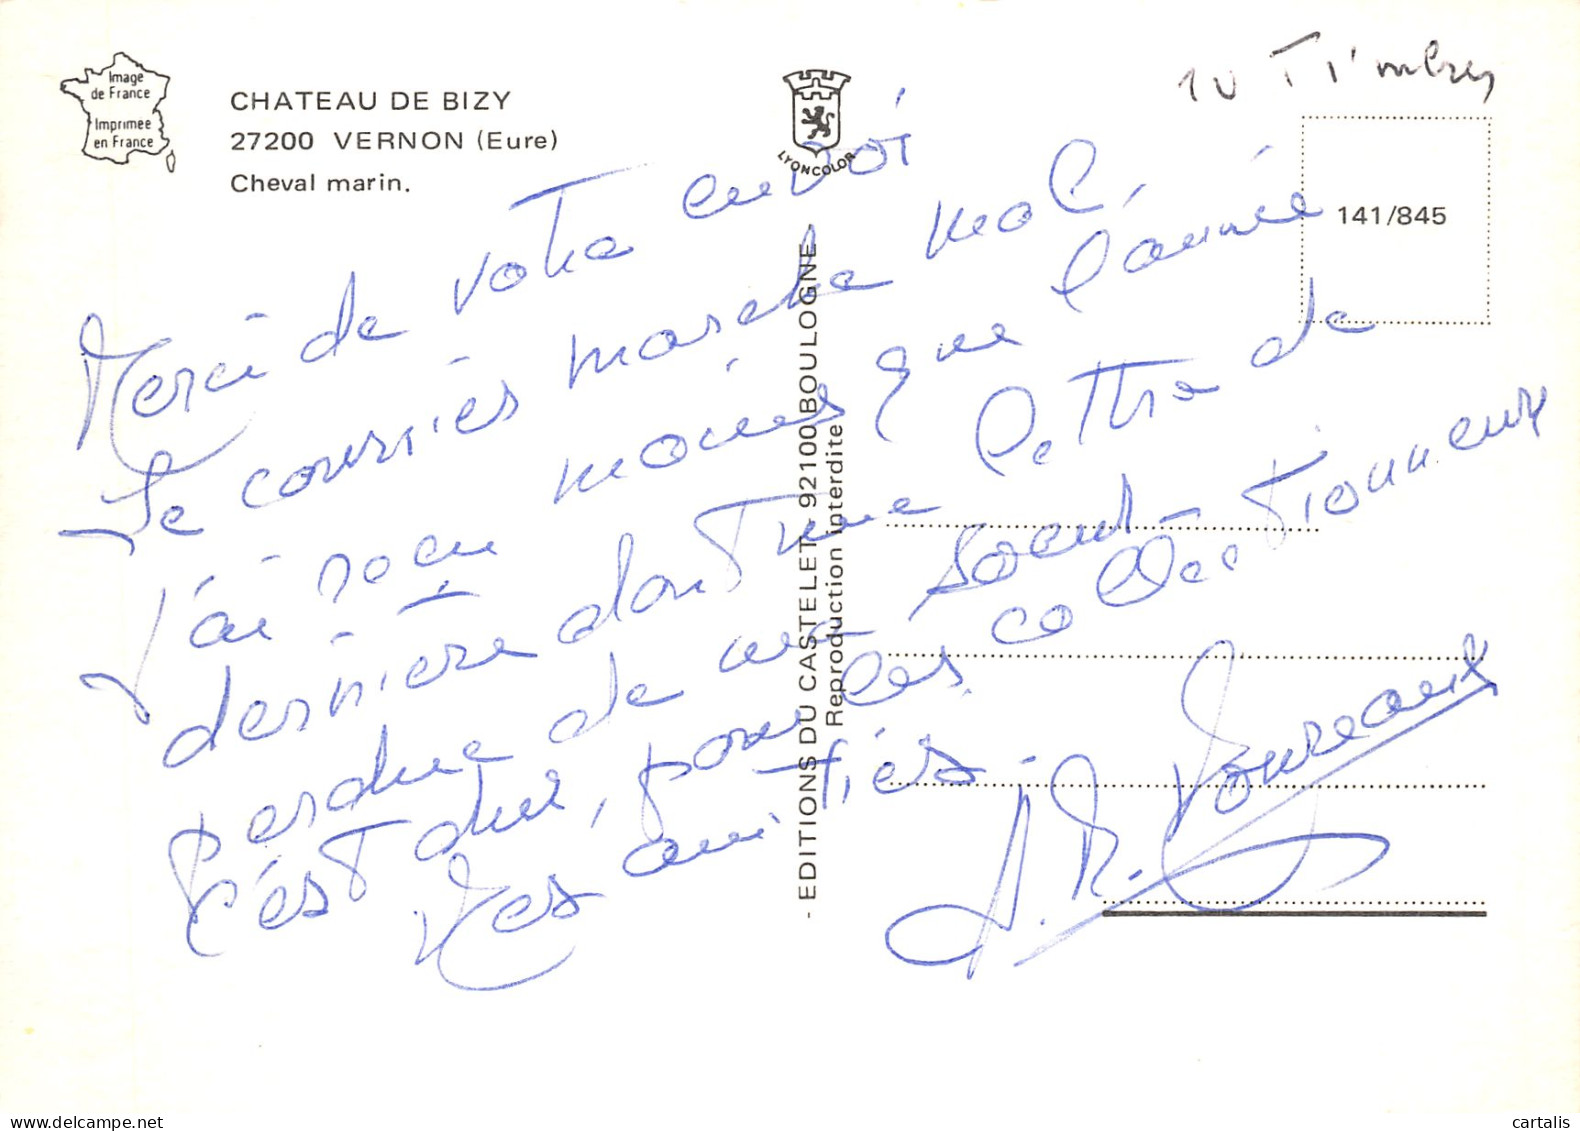 Image
de France
Imprimée
en France
CHATEAU DE BIZY
27200 VERNON (Eure)
Cheval marin.
LYONCOLOR
10 Timbres
141/845
- EDITIONS DU CASTELET - 92100 BOULOGNE -
Reproduction interdite
Merci de votre envoi
Le courriés marche mal,
J'ai reçu moins que l'année
dernière dont une lettre de
perdue de ma soeur
c'est dur, pour les collectionneurs
Mes amitiés.
delcampe.net
cartalis